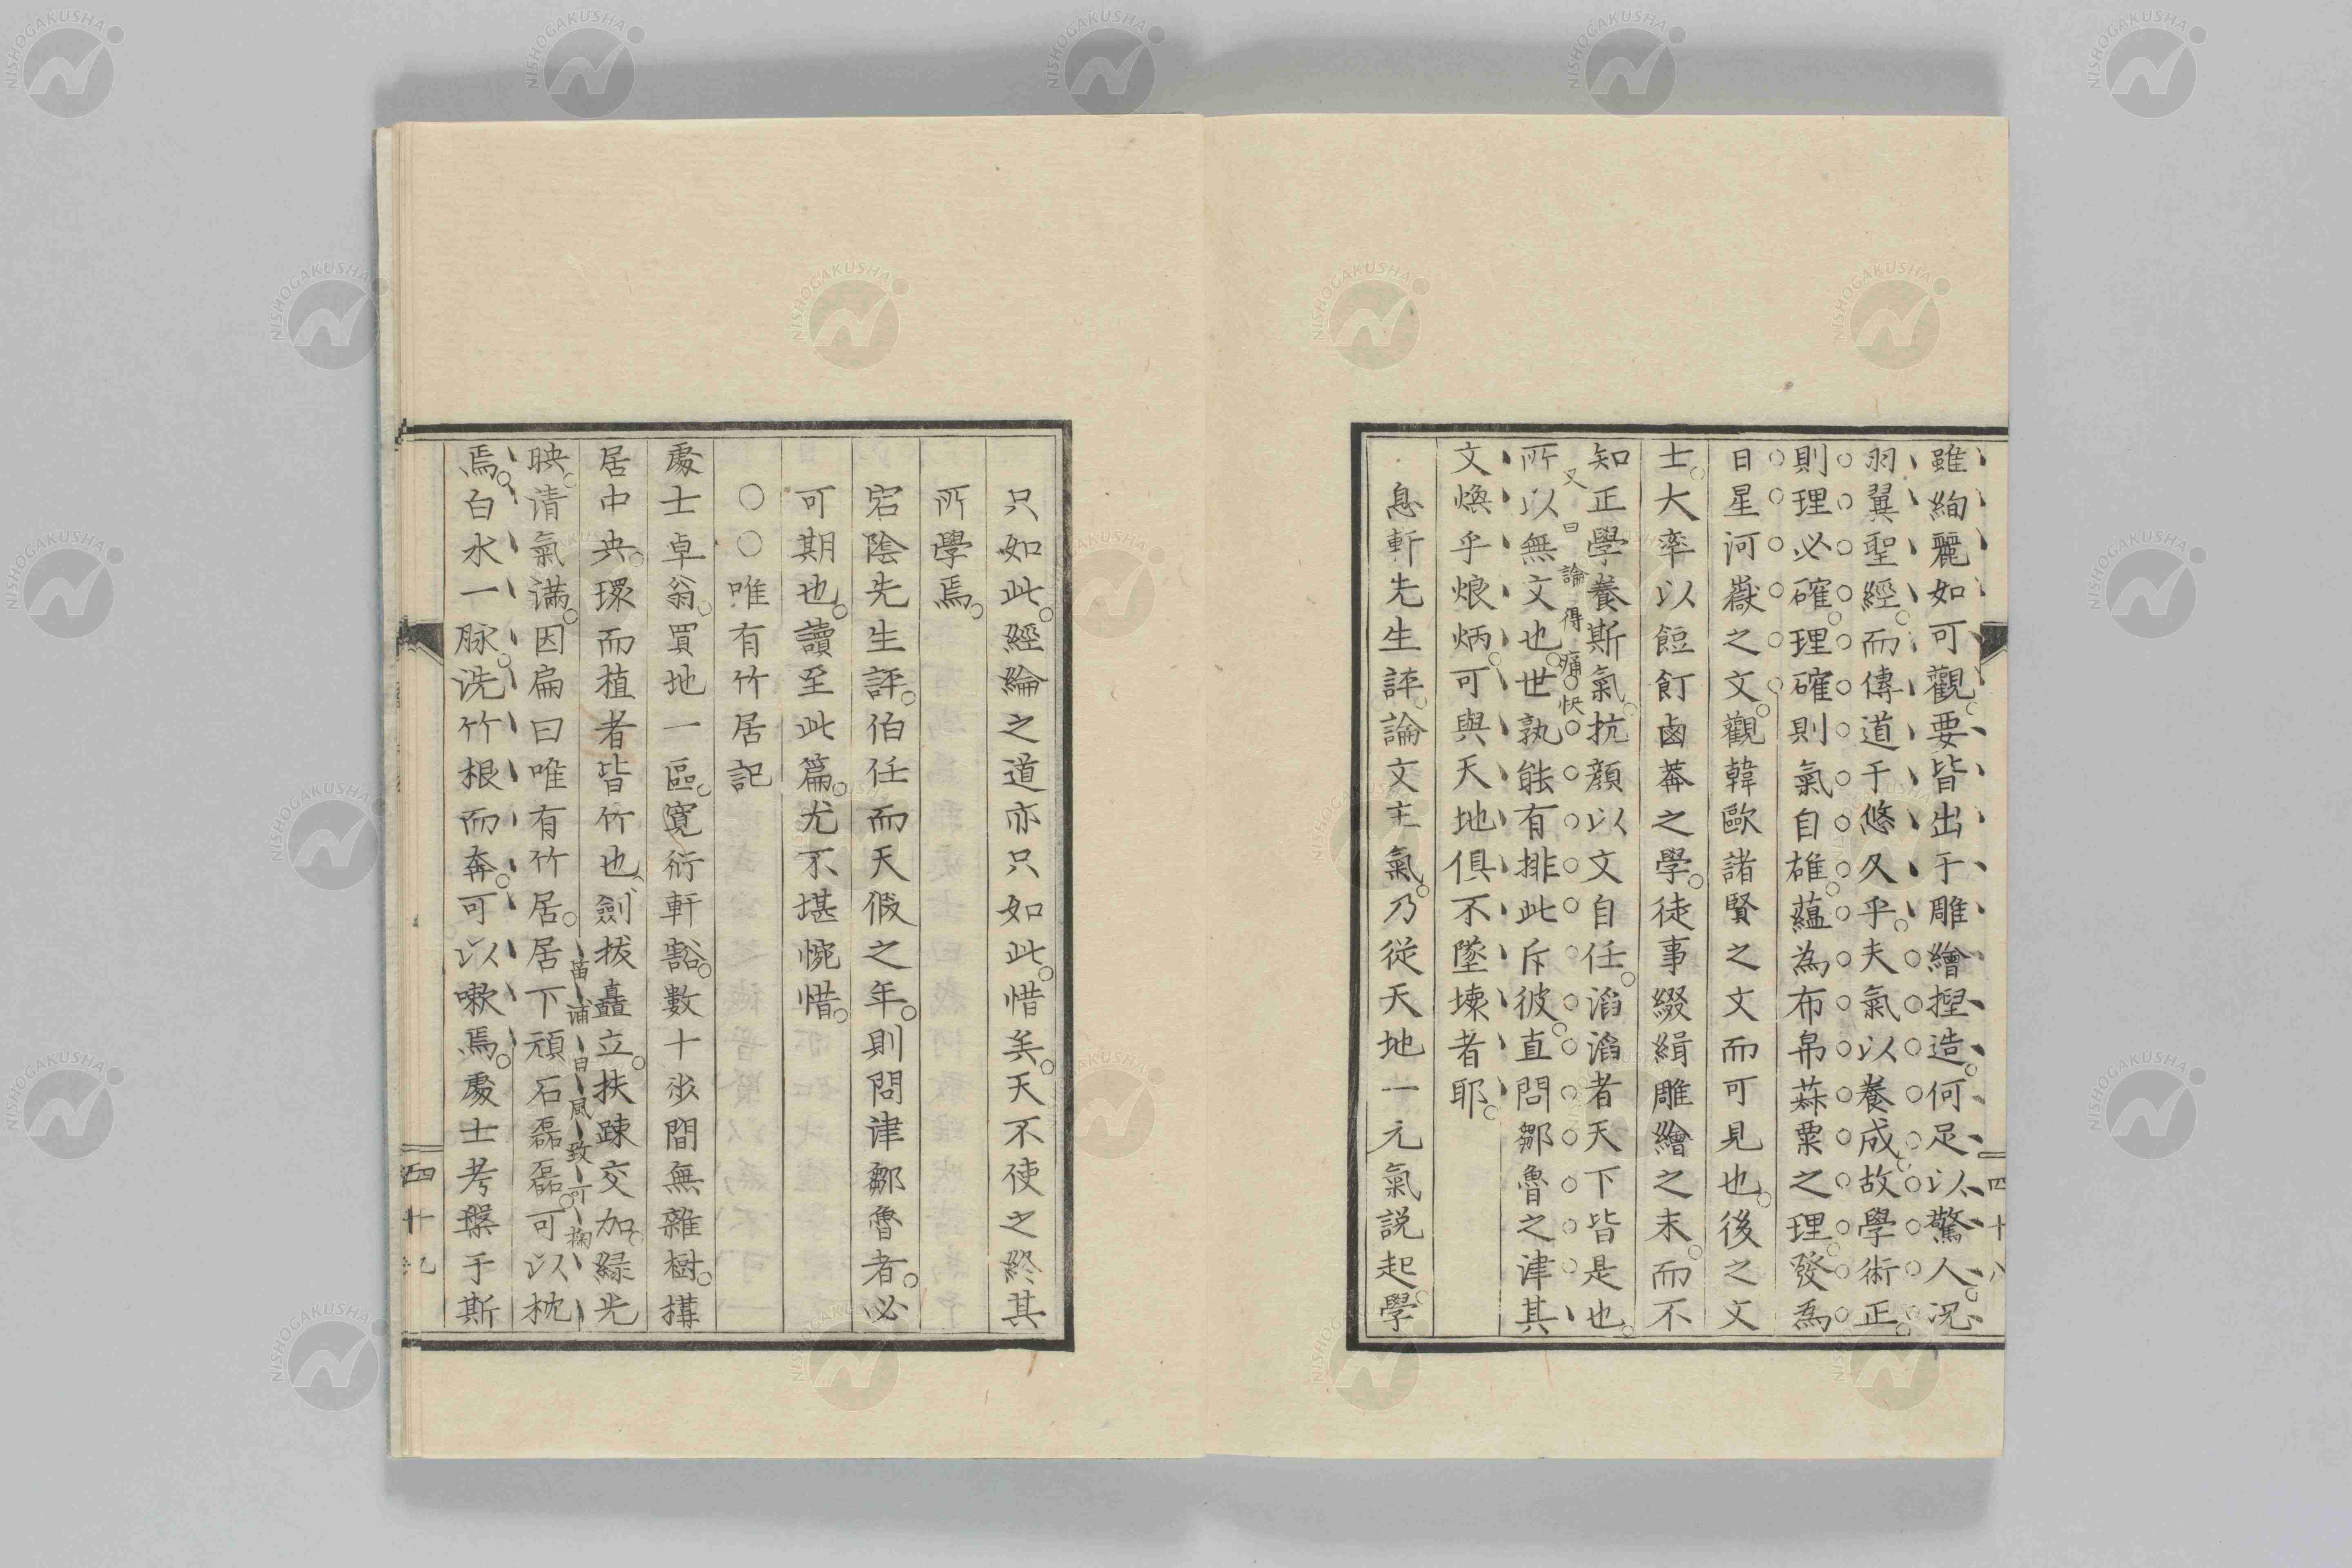 雖絢麗如可觀要皆出于雕繪揑造何足以驚人況
羽翼聖經而傳道于悠久乎夫氣以養成故學術正
則理必確理確則氣自雄蘊為布帛菽粟之理發爲
日星河嶽之文觀韓歐諸賢之文而可見也後之文
士大率以餖飣鹵莽之學徒事綴緝雕繪之末而不
知正學養斯氣抗顔以文自任滔滔者天下皆是也
又曰論得痛快
所以無文也世孰能有排此斥彼直問鄒魯之津其
文煥乎烺炳可與天地俱不墜壊者耶
息軒先生評論文主氣乃從天地一元氣説起學
四十八
只如此經綸之道亦只如此惜矣天不使之終其
所學焉
宕陰先生評伯任而天假之年則問津鄒魯者必
可期也讀至此篇尤不堪惋惜
○○唯有竹居記
處士卓翁買地一區寛衍軒豁數十步間無雜樹搆
居中央環而植者皆竹也劍拔矗立扶踈交加緑光
苗浦曰風致可掬
映清氣滿因扁曰唯有竹居居下頑石磊磊可以枕
焉白水一脉洗竹根而奔可以嗽焉處士考槃于斯
四十九
NISHOGAKUSHA